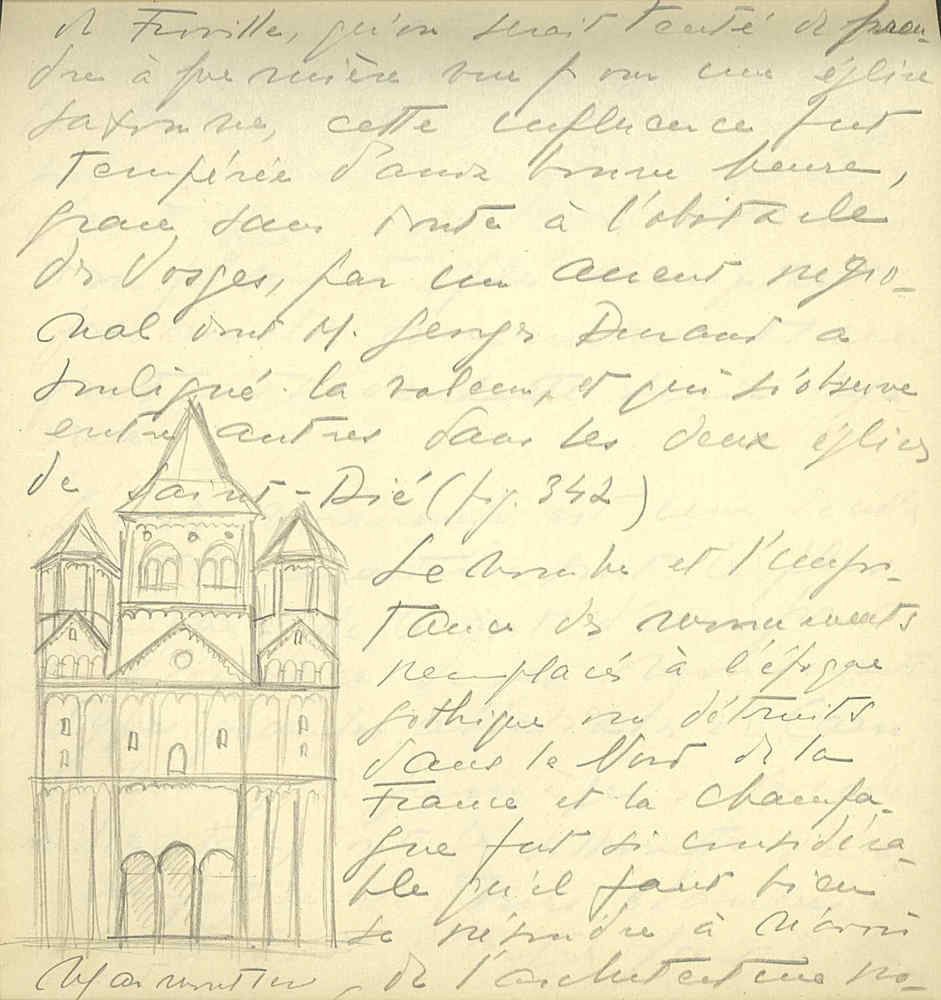 de Froville, qu'on serait tenté de pren-
dre à première vue pour une église
saxonne, cette influence fut
tempérée d'assez bonne heure,
grace sans doute à l'obstacle
des Vosges, par un accent régio-
nal dont M. Georges Durand a
souligné la valeur, et qui s'observe
entre autres dans les deux églises
de Saint-Dié (fig. 342)
Le nombre et l'impor-
tance des monuments
remplacés à l'époque
gothique ou détruits
dans le Nord de la
France et la Champa-
gne fut si considéra-
ble qu'il faut bien
se résoudre à n'avoir
Marmoutier
de l'architecture ro-